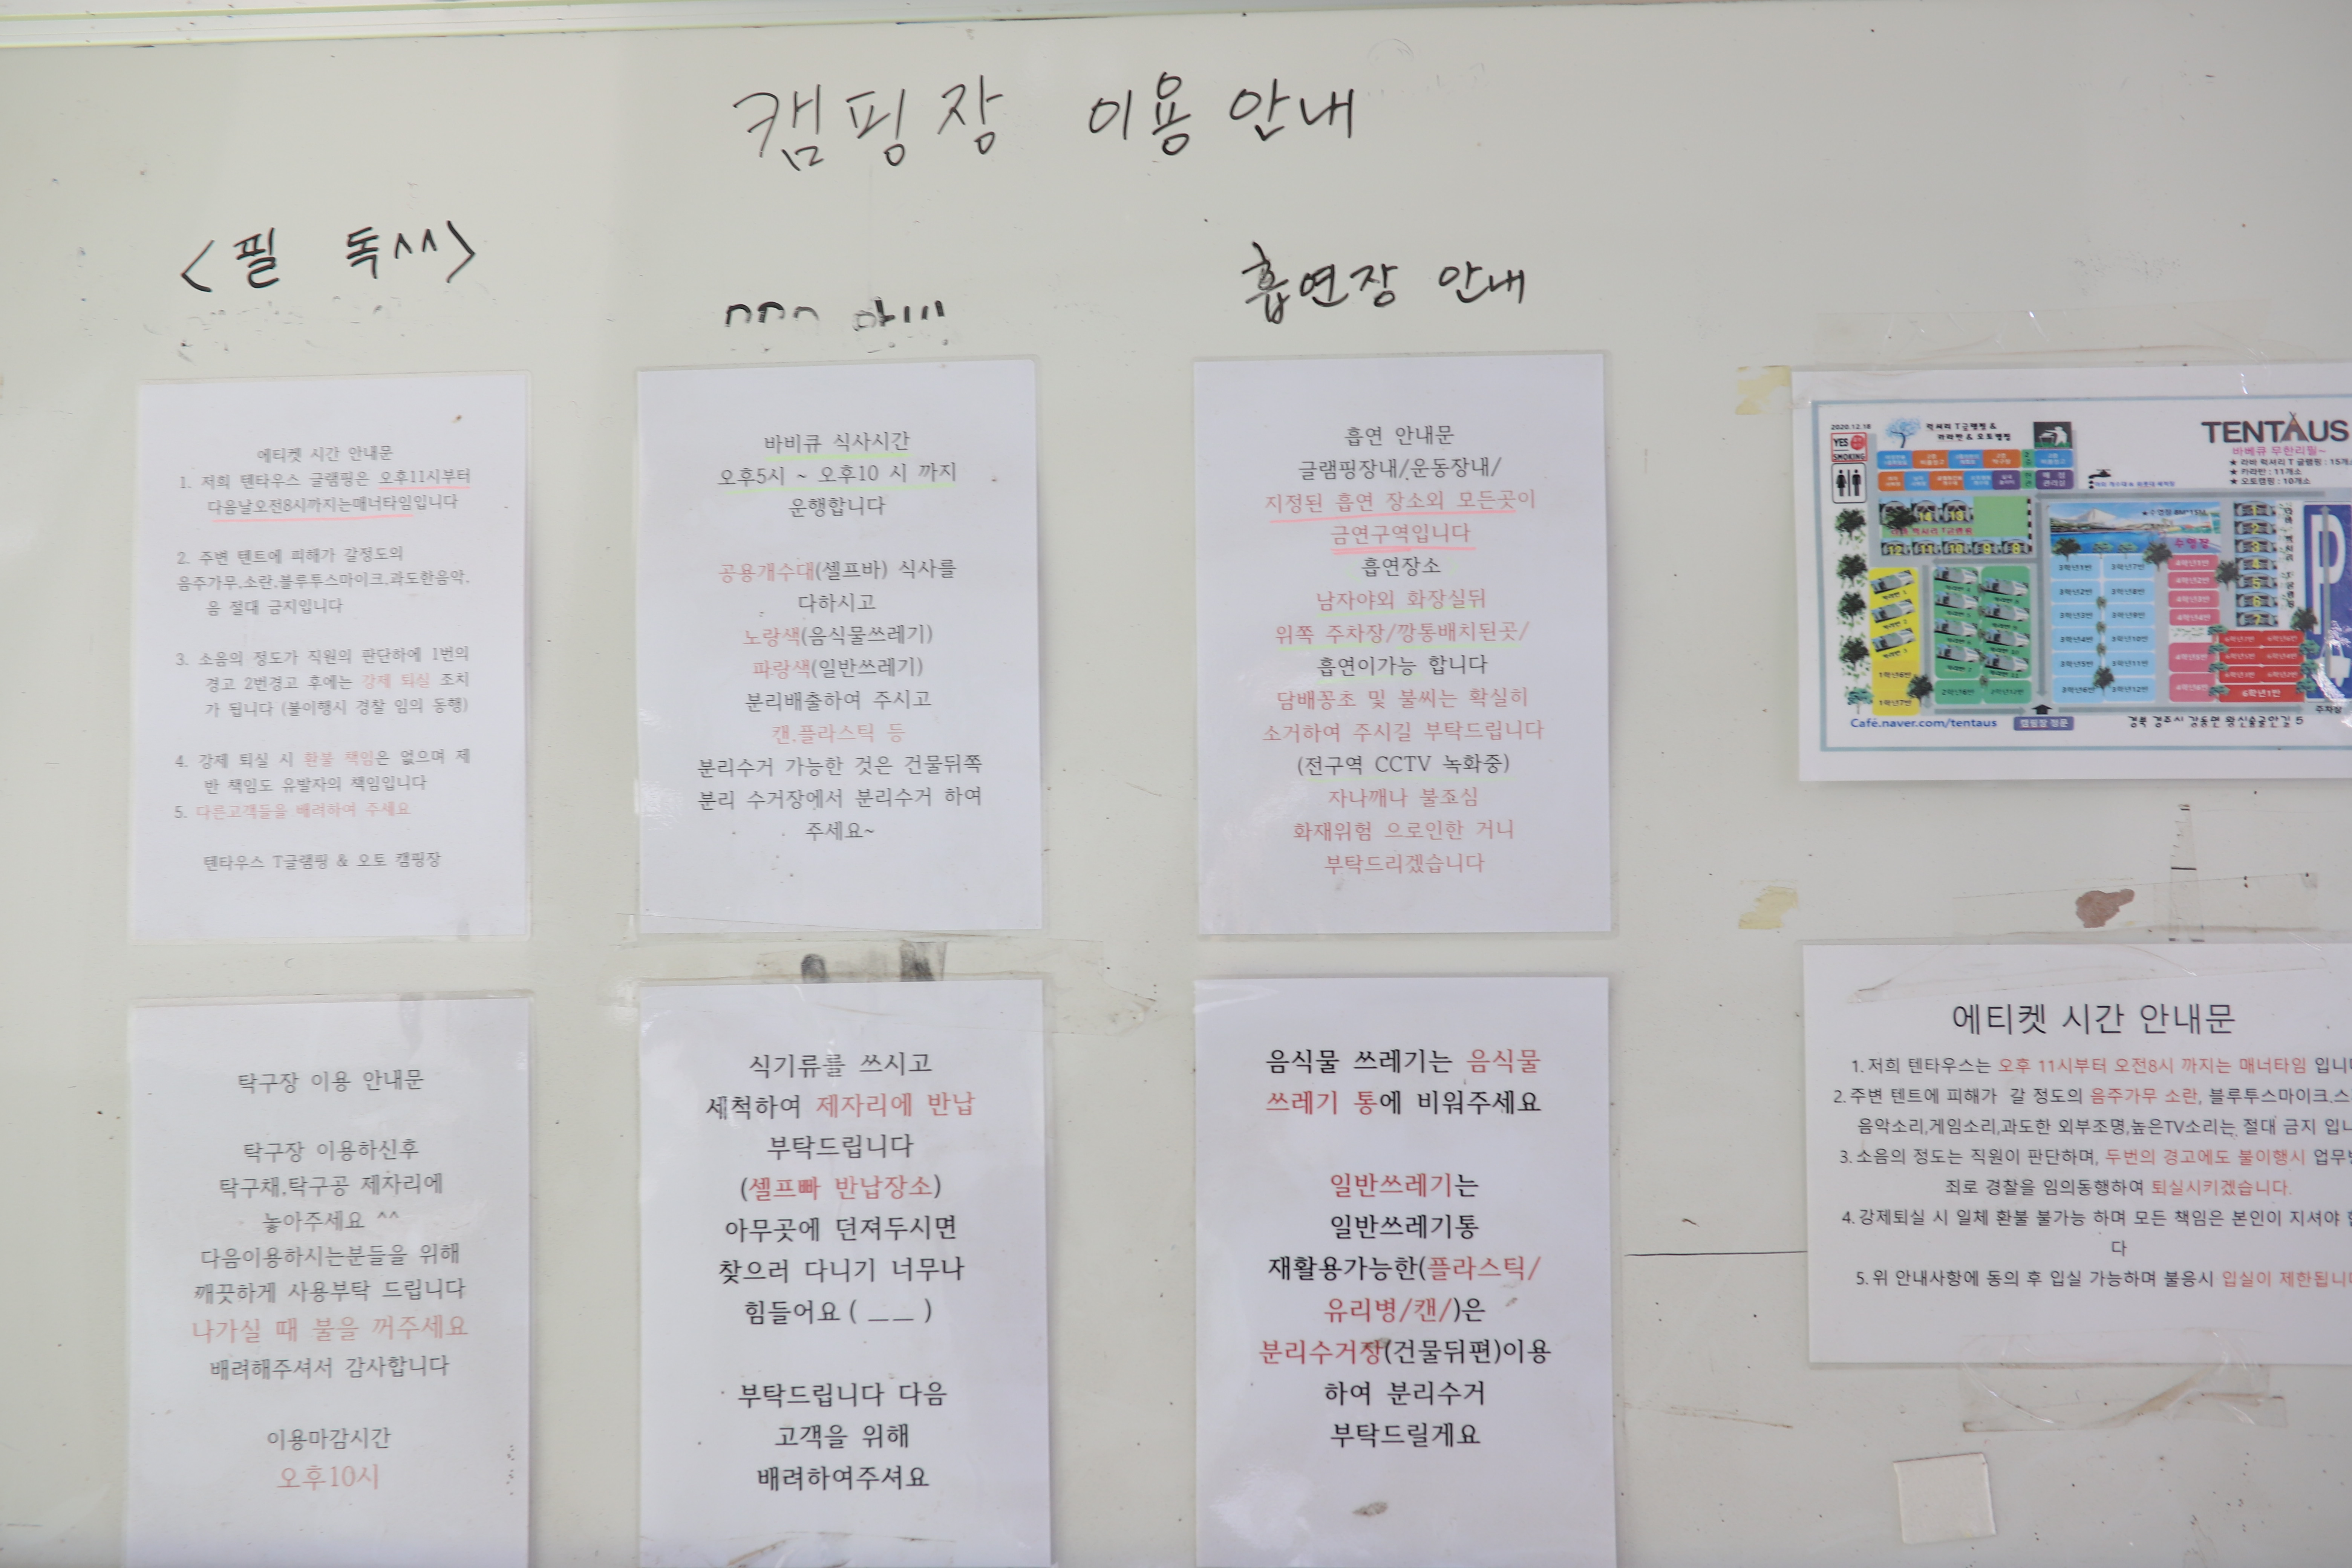 캠핑장 이용안내
<필 독^^>
흡연장 안내
에티켓 시간 안내문
1. 저희 텐타우스 글램핑은 오후11시부터
다음날오전8시까지는매너타임입니다
2. 주변 텐트에 피해가 갈정도의
음주가무.소란.블루투스마이크.과도한음악.
음 절대 금지입니다
3. 소음의 정도가 직원의 판단하에 1번의
경고 2번경고 후에는 강제 퇴실 조치
가 됩니다 (불이행시 경찰 임의 동행)
4. 강제 퇴실 시 환불 책임은 없으며 제
반 책임도 유발자의 책임입니다
5. 다른고객들을 배려하여 주세요
텐타우스 T글램핑 & 오토 캠핑장
바비큐 식사시간
오후5시 ~ 오후10 시 까지
운행합니다
공용개수대(셀프바) 식사를
다하시고
노랑색(음식물쓰레기)
파랑색(일반쓰레기)
분리배출하여 주시고
캔.플라스틱 등
분리수거 가능한 것은 건물뒤쪽
분리 수거장에서 분리수거 하여
주세요~
흡연 안내문
글램핑장내/운동장내/
지정된 흡연 장소외 모든곳이
금연구역입니다
흡연장소
남자야외 화장실뒤
위쪽 주차장/깡통배치된곳/
흡연이가능 합니다
담배꽁초 및 불씨는 확실히
소거하여 주시길 부탁드립니다
(전구역 CCTV 녹화중)
자나깨나 불조심
화재위험 으로인한 거니
부탁드리겠습니다
2020.12.18
YES
SMOKING
럭셔리 T글램핑 &
카라반 & 오토캠핑
TENTAUS
바베큐 무한리필~
★ 라바 럭셔리 T 글램핑 : 15개소
★ 카라반 : 11개소
★ 오토캠핑 : 10개소
수영장
P
Café.naver.com/tentaus
캠핑장 정문
경북 경주시 강동면 왕신술골안길 5
주차장
탁구장 이용 안내문
탁구장 이용하신후
탁구채.탁구공 제자리에
놓아주세요 ^^
다음이용하시는분들을 위해
깨끗하게 사용부탁 드립니다
나가실 때 불을 꺼주세요
배려해주셔서 감사합니다
이용마감시간
오후10시
식기류를 쓰시고
세척하여 제자리에 반납
부탁드립니다
(셀프빠 반납장소)
아무곳에 던져두시면
찾으러 다니기 너무나
힘들어요 ( __ __ )
부탁드립니다 다음
고객을 위해
배려하여주셔요
음식물 쓰레기는 음식물
쓰레기 통에 비워주세요
일반쓰레기는
일반쓰레기통
재활용가능한(플라스틱/
유리병/캔/)은
분리수거장(건물뒤편)이용
하여 분리수거
부탁드릴게요
에티켓 시간 안내문
1. 저희 텐타우스는 오후 11시부터 오전8시 까지는 매너타임 입니
2. 주변 텐트에 피해가 갈 정도의 음주가무 소란, 블루투스마이크.스
음악소리,게임소리,과도한 외부조명,높은TV소리는 절대 금지 입니
3. 소음의 정도는 직원이 판단하며, 두번의 경고에도 불이행시 업무방
죄로 경찰을 임의동행하여 퇴실시키겠습니다.
4. 강제퇴실 시 일체 환불 불가능 하며 모든 책임은 본인이 지셔야
다
5. 위 안내사항에 동의 후 입실 가능하며 불응시 입실이 제한됩니